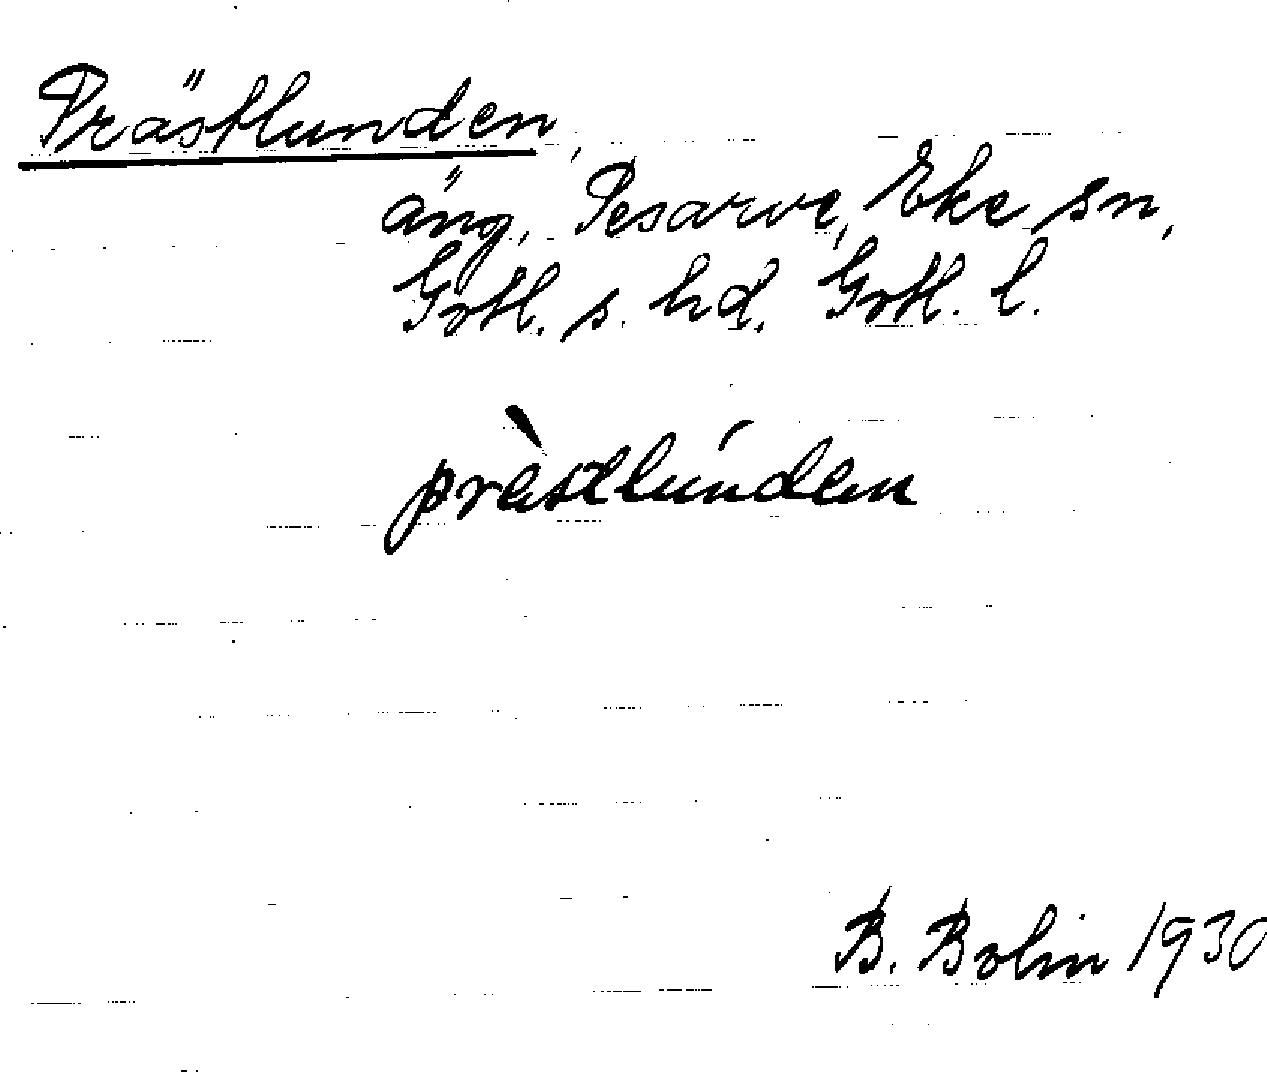 Prästlunden,
äng, Pesarve, Eke sn,
Gotl. s. hd. Gotl. l.
prèstlúnden
B. Bolin 1930